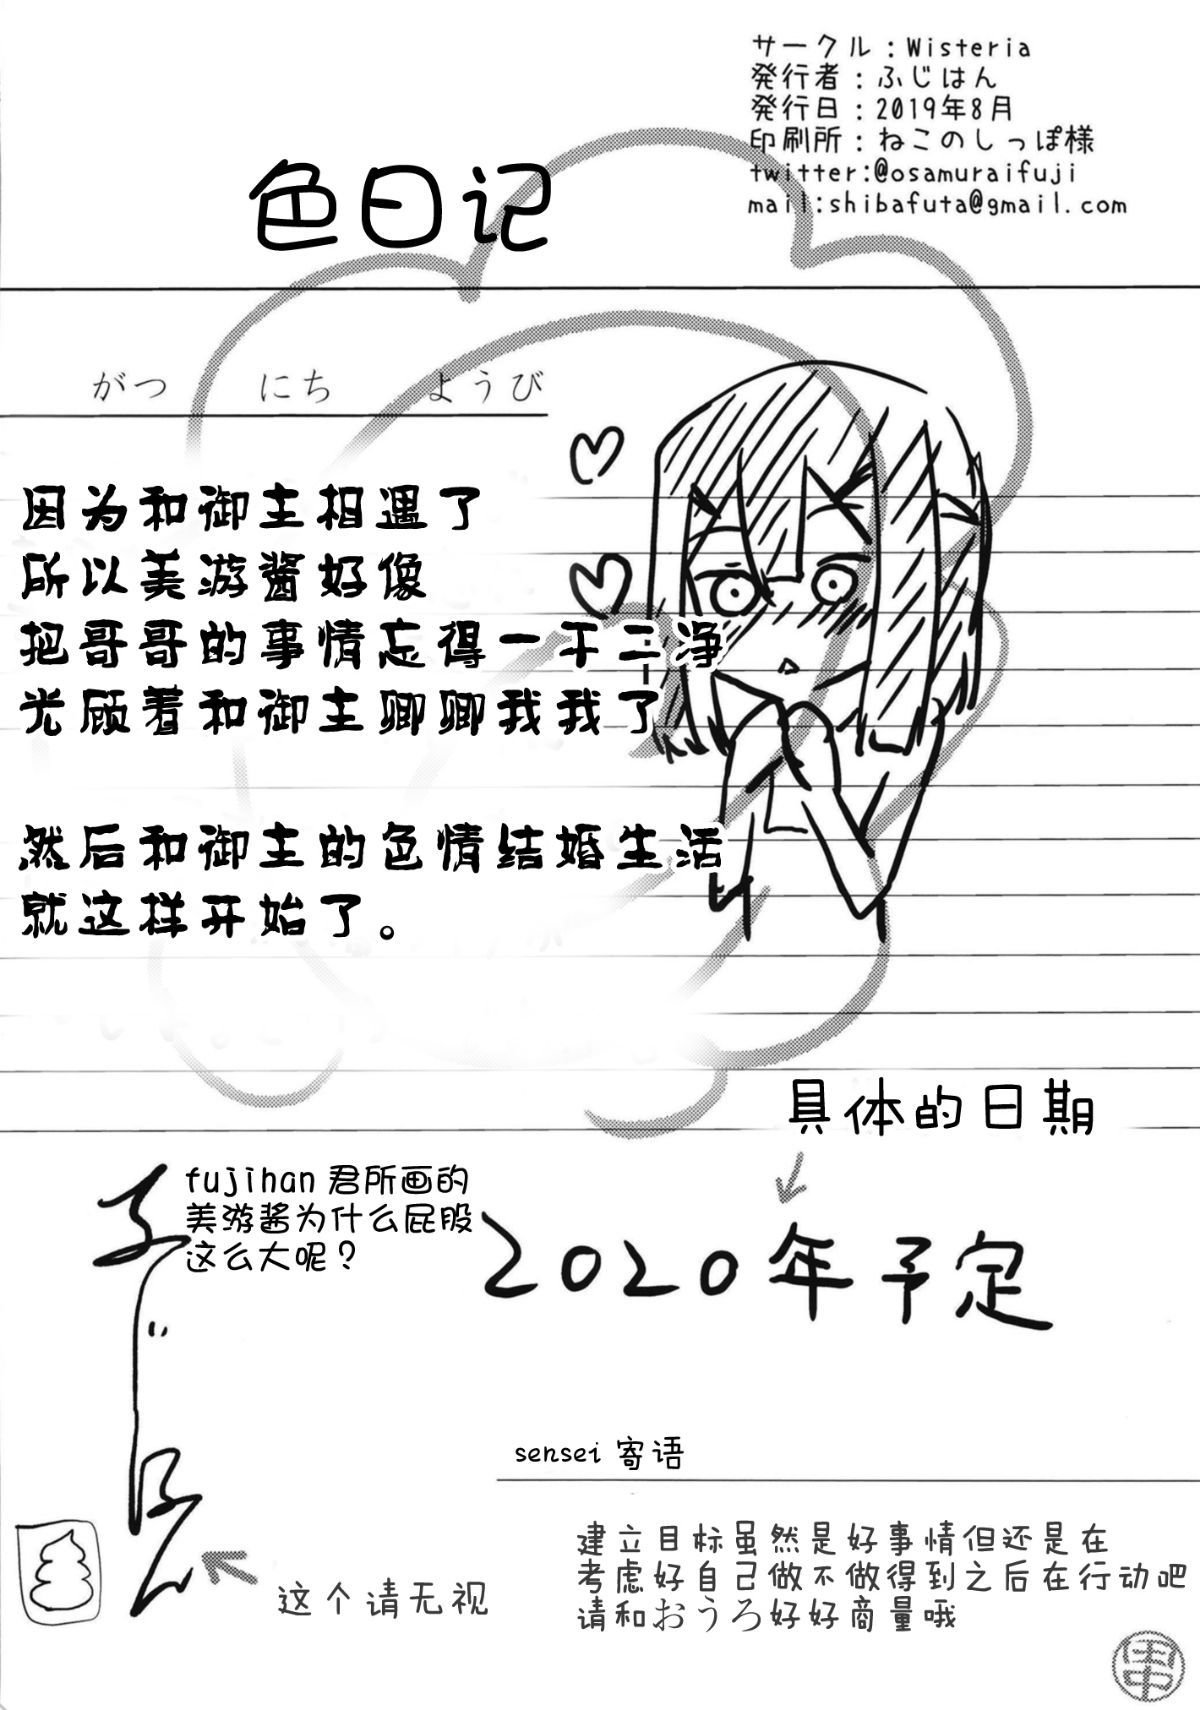 サークル：Wisteria
発行者：ふじはん
発行日：2019年8月
印刷所：ねこのしっぽ様
twitter:@osamuraifuji
mail:shibafuta@gmail.com
色日记
がつ　にち　ようび
因为和御主相遇了
所以美游酱好像
把哥哥的事情忘得一干二净
光顾着和御主卿卿我我了
然后和御主的色情结婚生活
就这样开始了。
具体的日期
fujihan君所画的
美游酱为什么屁股
这么大呢？
2020年予定
sensei寄语
建立目标虽然是好事情但还是在
考虑好自己做不做得到之后在行动吧
请和おうろ好好商量哦
这个请无视
田中